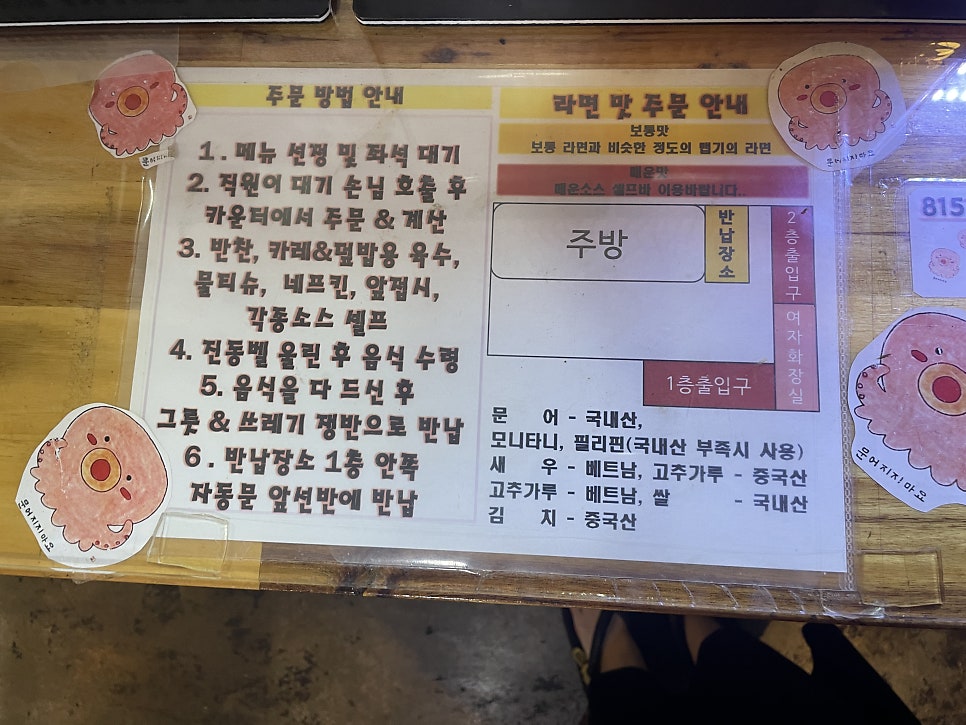 주문 방법 안내
1. 메뉴 선정 및 좌석 대기
2. 직원이 대기 손님 호출 후
카운터에서 주문 & 계산
3. 반찬, 카레&덮밥용 육수,
물티슈, 네프킨, 앞접시,
각종소스 셀프
4. 진동벨 울린 후 음식 수령
5. 음식을 다 드신 후
그릇 & 쓰레기 쟁반으로 반납
6. 반납장소 1층 안쪽
자동문 앞선반에 반납
라면 맛 주문 안내
보통맛
보통 라면과 비슷한 정도의 맵기의 라면
매운맛
매운소스 셀프바 이용바랍니다..
주방
반납장소
2층출입구
여자화장실
1층출입구
문 어 - 국내산,
모니타니, 필리핀(국내산 부족시 사용)
새 우 - 베트남, 고추가루 - 중국산
고추가루 - 베트남, 쌀 - 국내산
김 치 - 중국산
문어지지마요
문어지지마요
문어지지마요
815